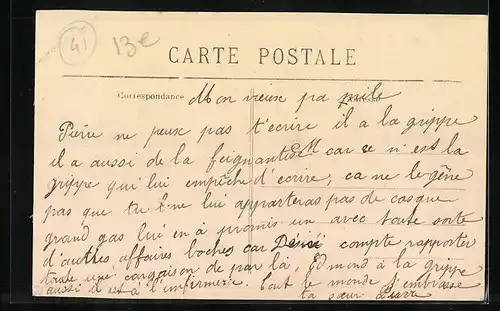 41
13e
CARTE POSTALE
Correspondance Mon vieux pa
Pierre ne peux pas t'ecrire il a la grippe
il a aussi de la feignantise car ce n'est la
grippe qui lui empêche d'ecrire, ca ne le gêne
pas que tu ne lui apporteras pas de casque
grand gas lui en a promis un avec toute sorte
d'autres affaires boches car Désiré compte rapporter
toute une cargaison de par là, Edmond à la grippe
aussi il est à l'enfirmerie. Tout le monde t'embrasse
ta sœur Pierre